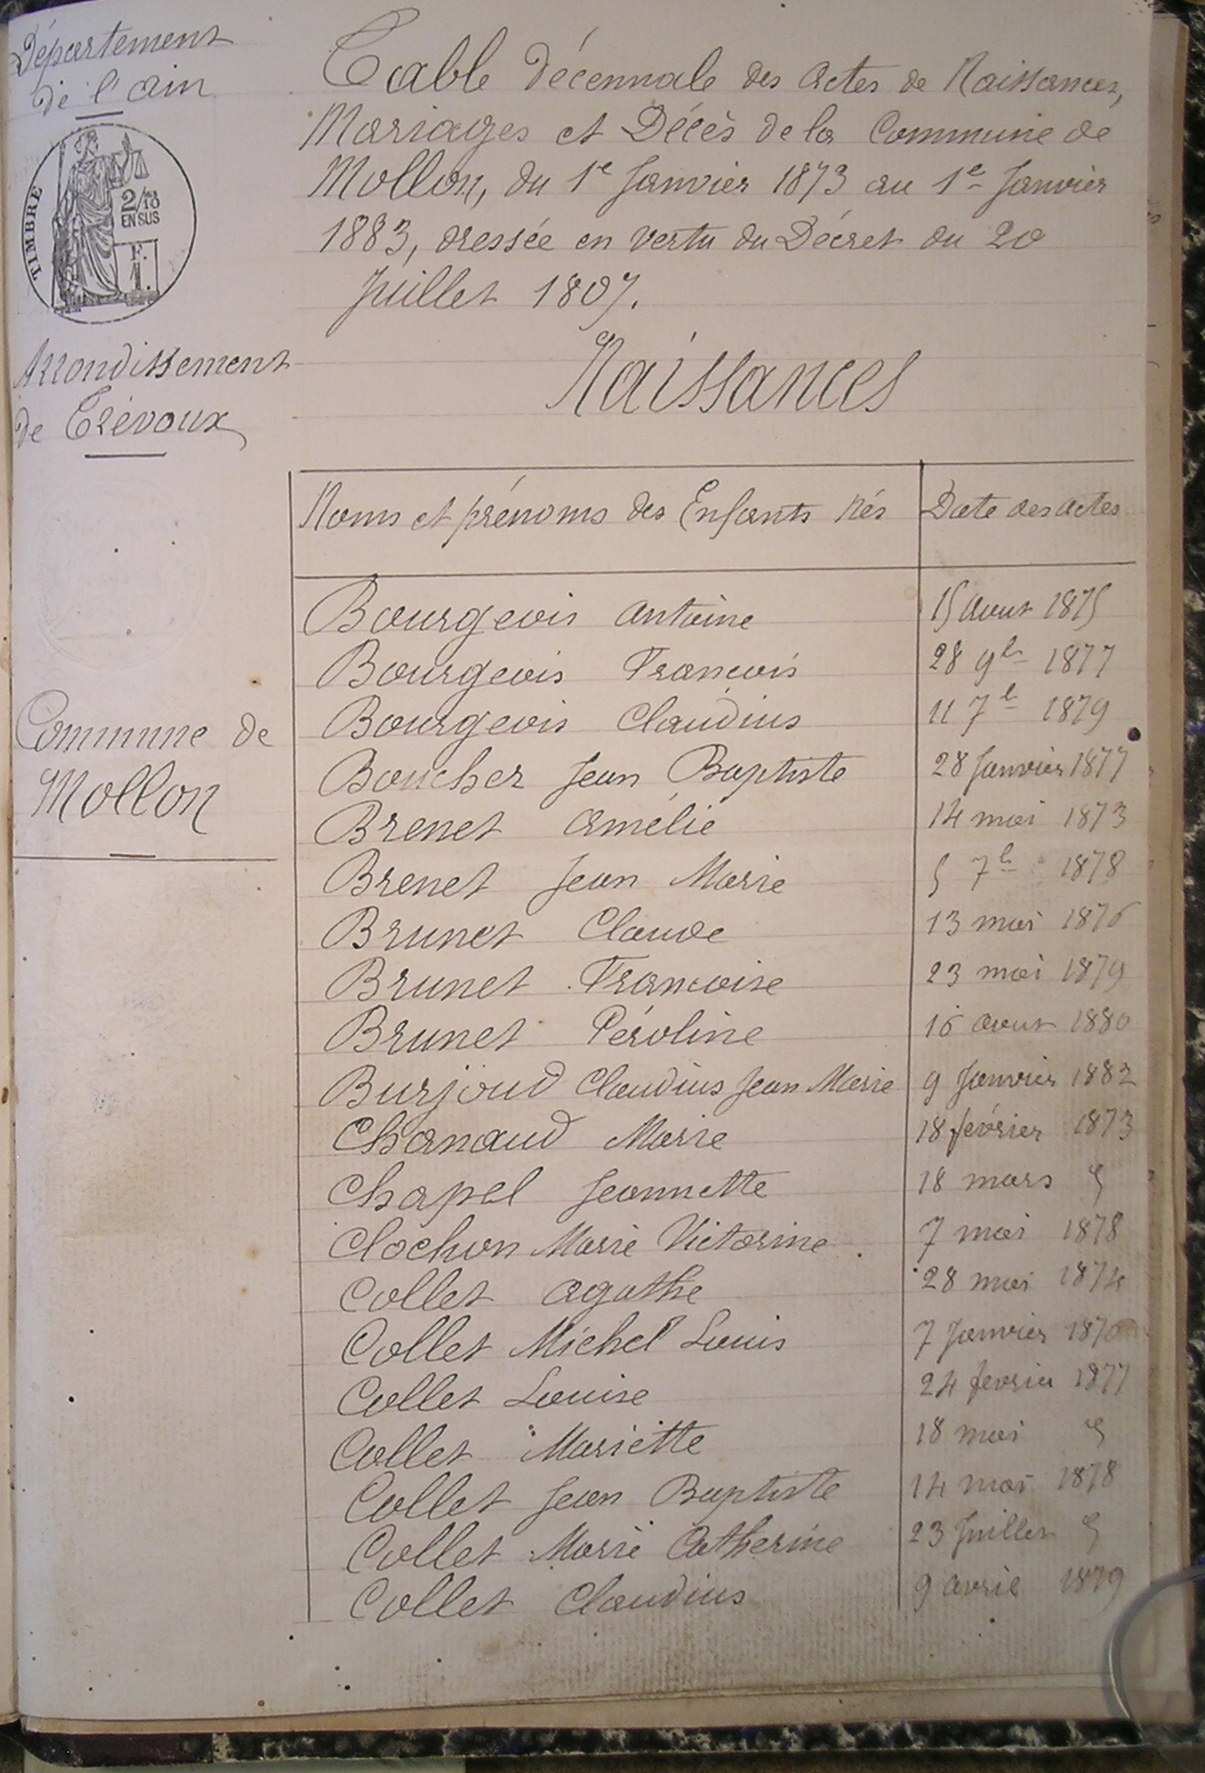 Département
de l'ain
TIMBRE
2/10
EN SUS
F.
1.
Arrondissement
de Trévoux
Commune de
Mollon
Table décennale des actes de Naissances,
Mariages et Décès de la Commune de
Mollon, du 1e Janvier 1873 au 1e Janvier
1883, dressée en vertu du Décret du 20
Juillet 1807.
Naissances
Noms et prénoms des Enfants Nés Date des actes
Bourgeois antoine 15 aout 1875
Bourgeois Francois 28 9b 1877
Bourgeois Claudius 11 7b 1879
Boucher Jean Baptiste 28 Janvier 1877
Brenet amélie 14 mai 1873
Brenet Jean Marie 5 7b 1878
Brunet Claude 13 mai 1876
Brunet Francoise 23 mai 1879
Brunet Péroline 16 aout 1880
Burjoud Claudius Jean Marie 9 Janvier 1882
Chanaud Marie 18 février 1873
Chapel Jeannette 18 mars
Clochon Marie Victorine 7 mai 1878
Collet agathe 28 mai 1874
Collet Michel Louis 7 Janvier
Collet Louise 24 fevrier 1877
Collet Mariette 18 mai
Collet Jean Baptiste 14 mai 1878
Collet Marie Catherine 23 Juillet
Collet Claudius 9 avril 1879